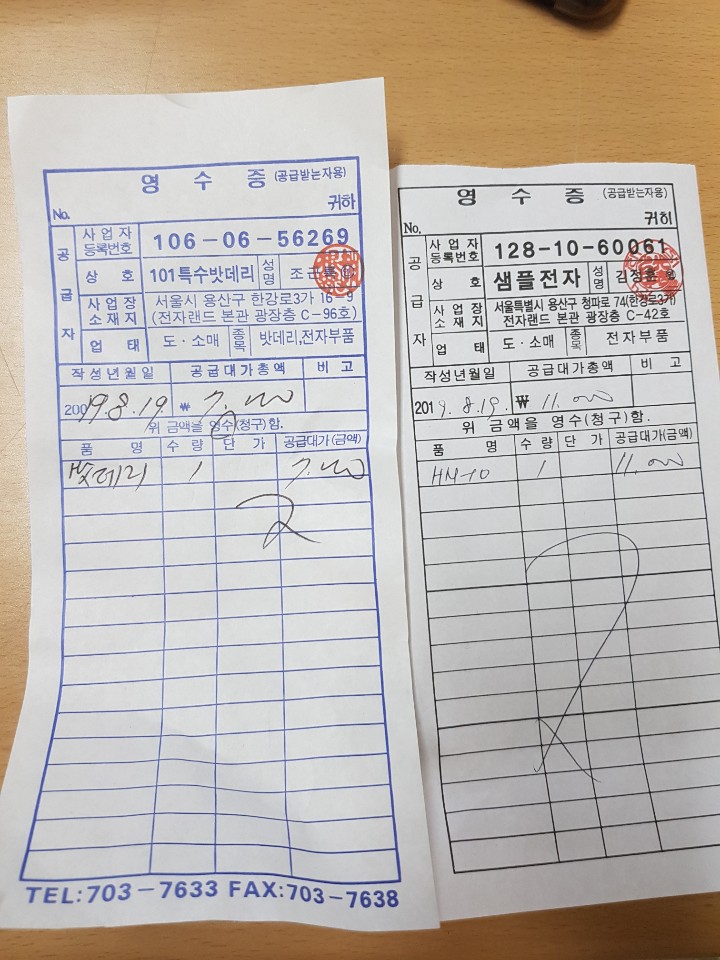 영 수 증 (공급받는자용)
No. 귀하
공급자
사업자등록번호 106-06-56269
상 호 101특수밧데리 성명 조근
사업장소재지 서울시 용산구 한강로3가 16-9
(전자랜드 본관 광장층 C-96호)
업 태 도·소매 종목 밧데리,전자부품
작성년월일 공급대가총액 비 고
2009.8.19. ₩ 7,000
위 금액을 영수(청구)함.
품 명 수 량 단 가 공급대가(금액)
밧데리 1 7,000
TEL:703-7633 FAX:703-7638
영 수 증 (공급받는자용)
No. 귀하
공급자
사업자등록번호 128-10-60061
상 호 샘플전자 성명 김정훈
사업장소재지 서울특별시 용산구 청파로 74(한강로3가)
전자랜드 본관 광장층 C-42호
업 태 도·소매 종목 전자부품
작성년월일 공급대가총액 비 고
2019.8.19. ₩ 11,000
위 금액을 영수(청구)함.
품 명 수 량 단 가 공급대가(금액)
HM-10 1 11,000